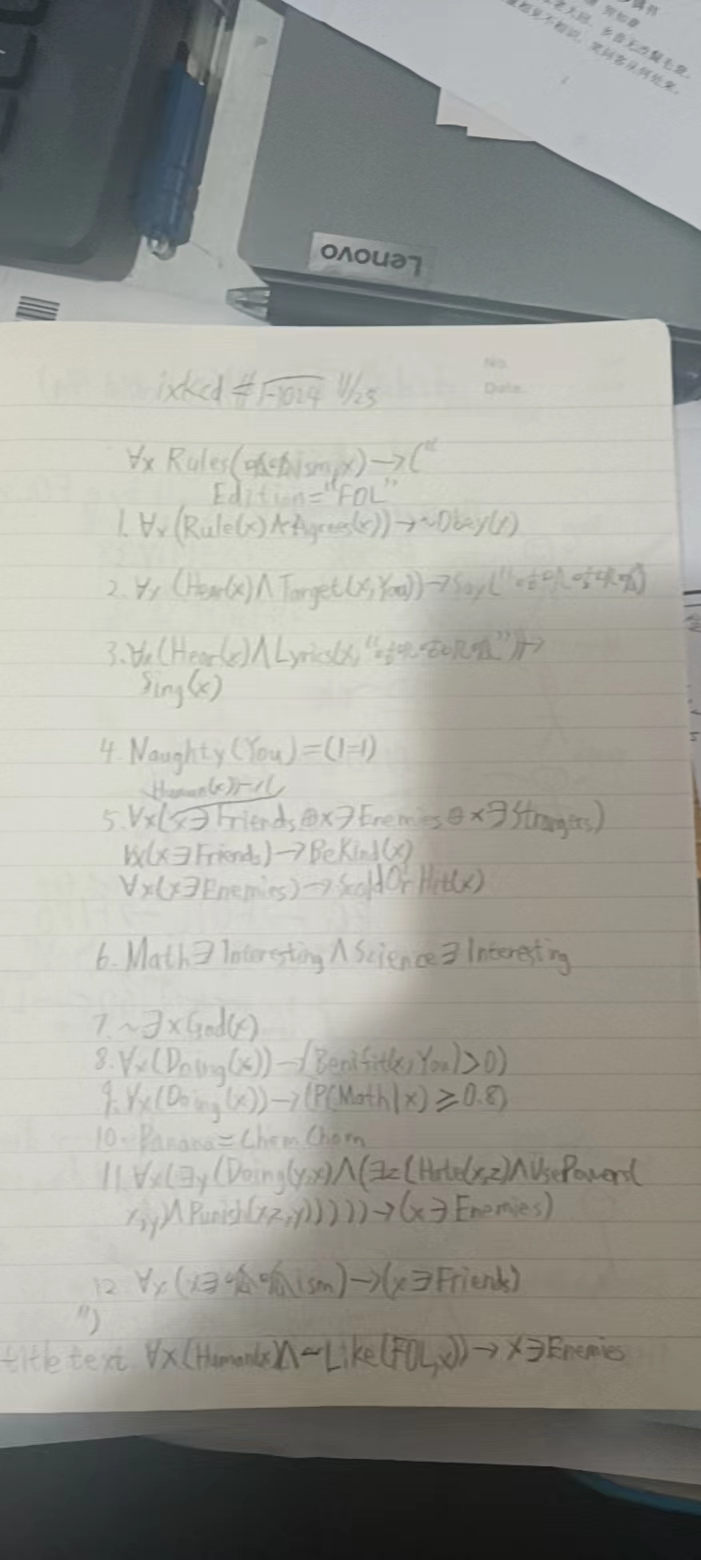 Lenovo
ixkcd #√-1024 11/25
No.
Date.
∀x Rules(ism,x)→("
Edition="FOL"
1. ∀x(Rule(x)∧Agrees(x))→~Obey(x)
2. ∀x(Hear(x)∧Target(x,You))→Say("
3. ∀x(Hear(x)∧Lyrics(x,"
Sing(x)
4. Naughty(You)=(1=1)
Human(x)→(
5. ∀x(x∋Friends⊕x∋Enemies⊕x∋Strangers)
∀x(x∋Friends)→BeKind(x)
∀x(x∋Enemies)→ScoldOrHit(x)
6. Math∋Interesting∧Science∋Interesting
7. ~∃xGod(x)
8. ∀x(Doing(x))→(Benifit(x,You)>0)
9. ∀x(Doing(x))→(P(Math|x)≥0.8)
10. Banana=ChomChom
11. ∀x(∃y(Doing(y,x)∧(∃z(Hate(x,z)∧UsePower(
x,y)∧Punish(x,z,y)))))→(x∋Enemies)
12. ∀x(x∋ism)→(x∋Friends)
")
title text ∀x(Human(x)∧~Like(FOL,x))→x∋Enemies